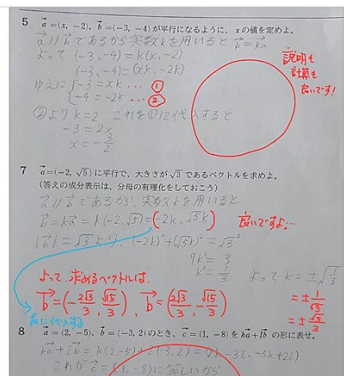 5 a=(x, -2), b=(-3, -4) が平行になるように, x の値を定めよ。
a∥b であるから実数kを用いると b=ka
よって (-3, -4)=k(x, -2)
(-3, -4)=(xk, -2k)
ゆえに -3=xk … ①
-4=-2k … ②
②より k=2 これを①に代入すると
-3=2x
x=-3/2
説明も
計算も
良いです!
7 a=(-2, √5) に平行で, 大きさが √3 であるベクトルを求めよ。
(答えの成分表示は, 分母の有理化をしておこう)
a∥b であるから, 実数kを用いると
b=ka=k(-2, √5)=(-2k, √5k) 良いですよ…
|b|=√3 より, (-2k)²+(√5k)²=√3²
9k²=3
k²=1/3 よって k=±√1/3
=±1/√3
=±√3/3
よって 求めるベクトルは
b=(-2√3/3, √15/3), b=(2√3/3, -√15/3)
8 a=(2, -5), b=(-3, 2) のとき, c=(1, -8) を ka+lb の形に表せ。
これが c=(1, -8)に等しいから